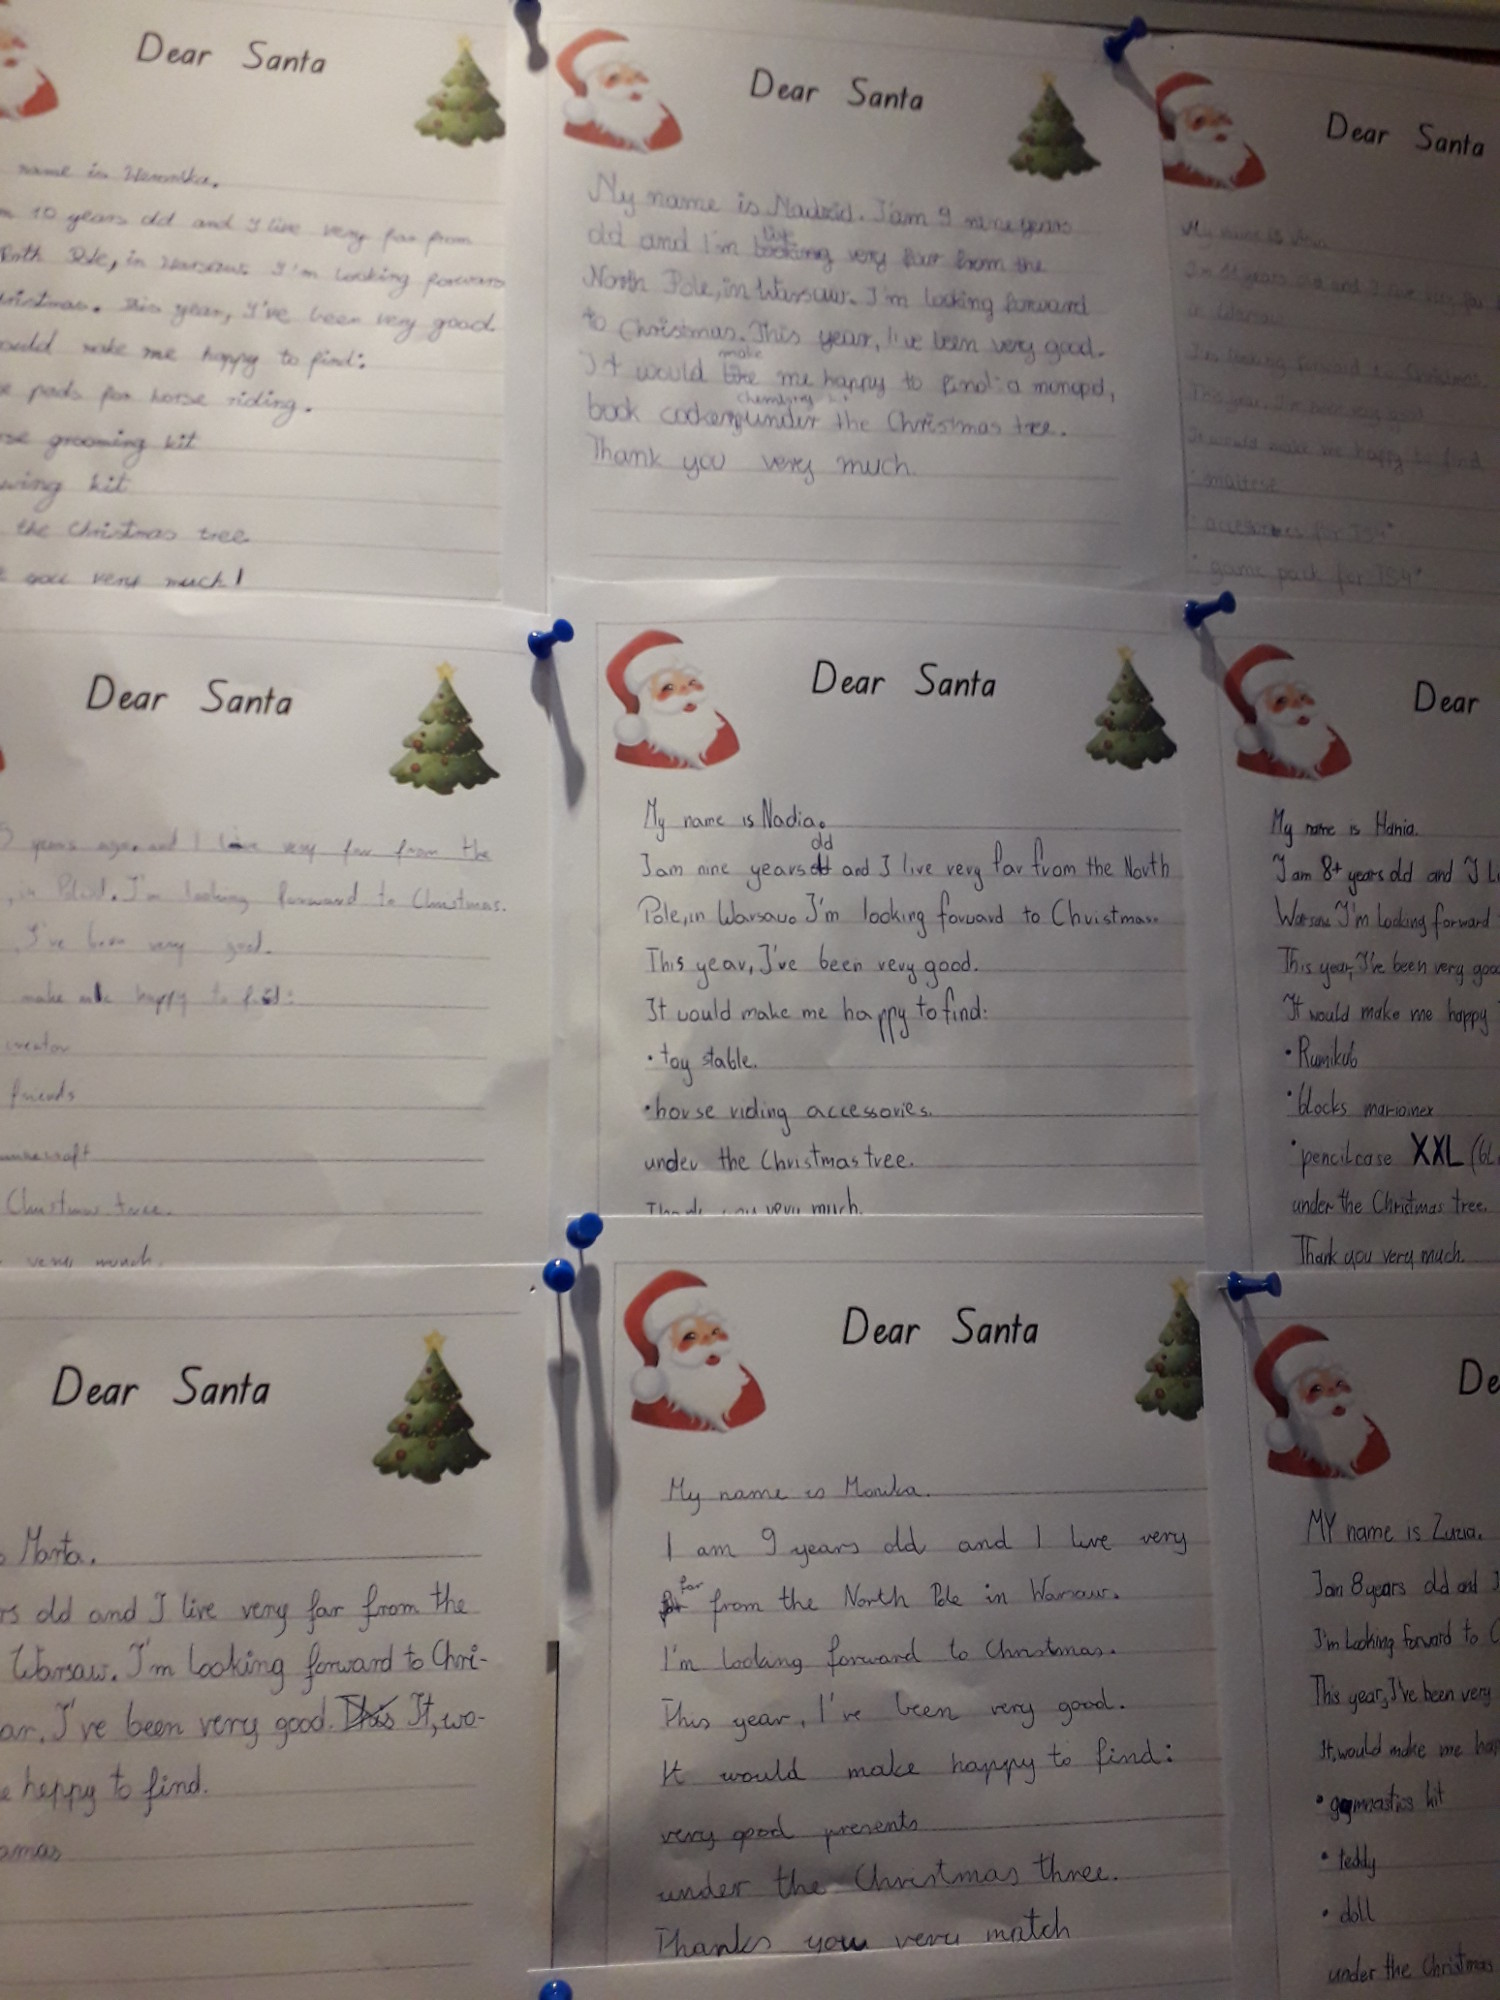 Dear Santa
name is Weronika.
10 years old and I live very far from
Pole, in Warsaw. I'm looking forward
This year, I've been very good.
make me happy to find:
pads for horse riding.
grooming kit
kit
the Christmas tree
you very much!
Dear Santa
My name is I am 9 nine years
old and I'm live very far from the
North Pole, in Warsaw. I'm looking forward
to Christmas. This year, I've been very good.
make
It would like me happy to find: a moneped,
book under the Christmas tree.
Thank you very much.
Dear Santa
My name is
years old and I live very far
in Warsaw
I'm looking forward to Christmas
This year, I've been very good
It would make me happy to find
maltese
accessories for TS4*
game pack for TS4*
Dear Santa
years ago and I live very far from the
, in Poland. I'm looking forward to Christmas.
I've been very good.
make me happy to find:
creator
friends
minecraft
Christmas tree.
very much.
Dear Santa
My name is Nadia.
old
I am nine years old and I live very far from the North
Pole, in Warsaw. I'm looking forward to Christmas.
This year, I've been very good.
It would make me happy to find:
• toy stable.
• horse riding accessories.
under the Christmas tree.
Thank you very much.
Dear
My name is Hania.
I am 8+ years old and I li
Warsaw I'm looking forward
This year, I've been very good
It would make me happy
• Rumikub
• blocks marioinex
• pencilcase XXL
under the Christmas tree.
Thank you very much.
Dear Santa
Marta.
rs old and I live very far from the
Warsaw. I'm looking forward to Chri-
ar, I've been very good. This It, wo-
e heppy to find.
amas
Dear Santa
My name is Monika.
I am 9 years old and I live very
far
from the North Pole in Warsaw.
I'm looking forward to Christmas.
This year, I've been very good.
It would make happy to find:
very good presents
under the Christmas three.
Thanks you very match
De
MY name is Zuzia.
I am 8 years old and I
I'm looking forward to C
This year, I've been very
It, would make me ha
• gymnastics kit
• teddy
• doll
under the Christmas